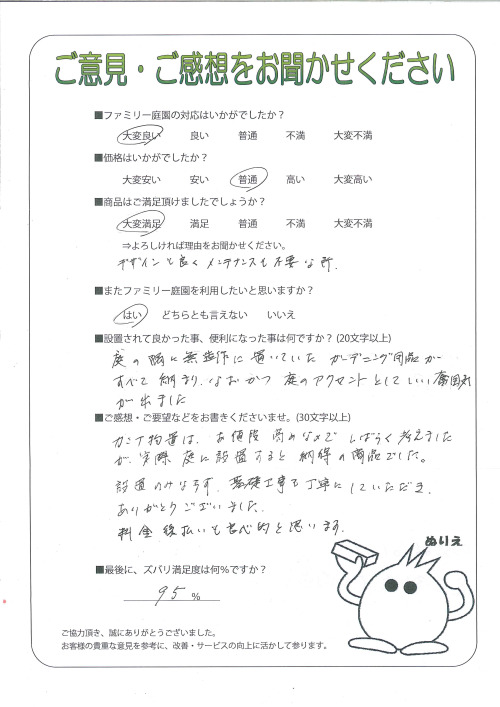 ご意見・ご感想をお聞かせください
■ファミリー庭園の対応はいかがでしたか？
大変良い 良い 普通 不満 大変不満
■価格はいかがでしたか？
大変安い 安い 普通 高い 大変高い
■商品はご満足頂けましたでしょうか？
大変満足 満足 普通 不満 大変不満
⇒よろしければ理由をお聞かせください。
デザインも良くメンテナンスも不要な所.
■またファミリー庭園を利用したいと思いますか？
はい どちらとも言えない いいえ
■設置されて良かった事、便利になった事は何ですか？(20文字以上)
庭の隅に無造作に置いていた ガーデニング用品が
すべて納まり、なおかつ 庭のアクセントとしていい雰囲気
が出ました
■ご感想・ご要望などをお書きくださいませ。(30文字以上)
物置は、お値段高めなので しばらく考えました
が、実際 庭に設置すると 納得の商品でした。
設置のみならず、基礎工事も丁寧にしていただき、
ありがとうございました。
料金後払いも良心的と思います.
ぬりえ
■最後に、ズバリ満足度は何％ですか？
95 %
ご協力頂き、誠にありがとうございました。
お客様の貴重な意見を参考に、改善・サービスの向上に活かして参ります。